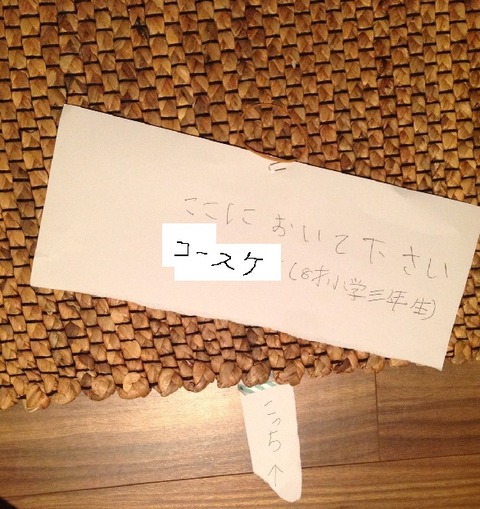 ここに おいて下さい
コースケ (8才小学三年生)
こっち↑